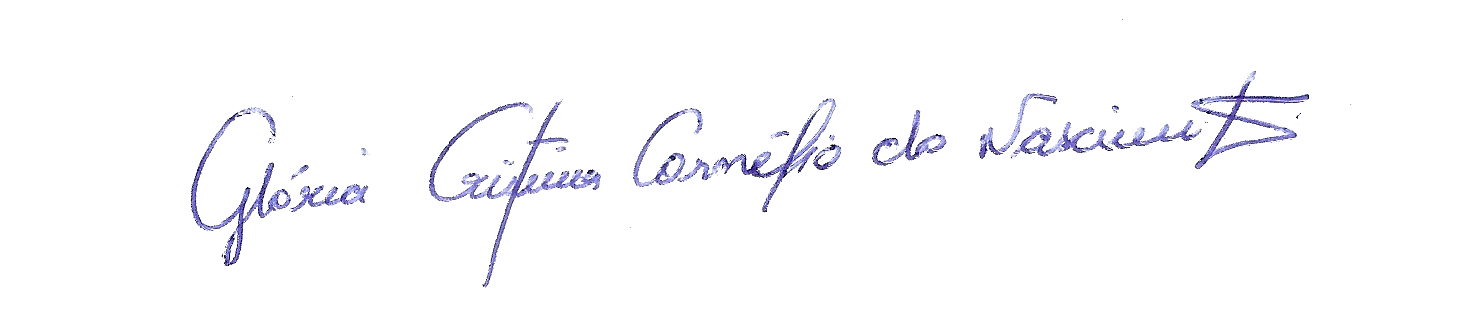 Glória Cristina Cornélio do Nascimento